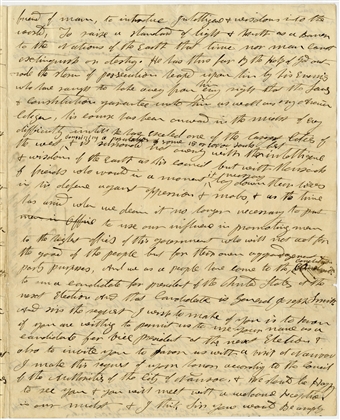 friend of man, to introduce intelligence & wisdom into the
world, To raise a standard of light & truth as a beacon
to the Nations of the Earth that time nor man cannot
extinguish or destroy He has thus far by the help of God
the storm of persecution heaped upon him by his enemies
who have sought to take away from him every right that the Laws
& Constitution guarantee unto him as well as any other
Citizen, his course has been onward in the midst of every
difficulty he has erected one of the Largest Cities in
the west &
& wisdom of the earth as his council but with thousands
of friends who would in a moment if necessary lay down their lives
in his defence against oppression & mobs, & as the time
has come when we deem it no longer necessary to put
men in office
to use our influence in promoting men
to the highest offices of this government who will not act for
the good of the people but for their own aggrandizement &
party purposes. And we as a people have come to the
to run a candidate for president of the United States at the
next Election and that Candidate is General Joseph Smith
And now the request I wish to make of you is to know
if you are willing to permit us to use your name as a
candidate for Vice President at the next Election &
also to invite you to favor us with a visit at Nauvoo
I make this request of you upon honor according to the council
of the Authorities of the City of Nauvoo, & We should be Happy
to see you & you will meet with a welcome reception
in our midst & I think Sir you would be amply